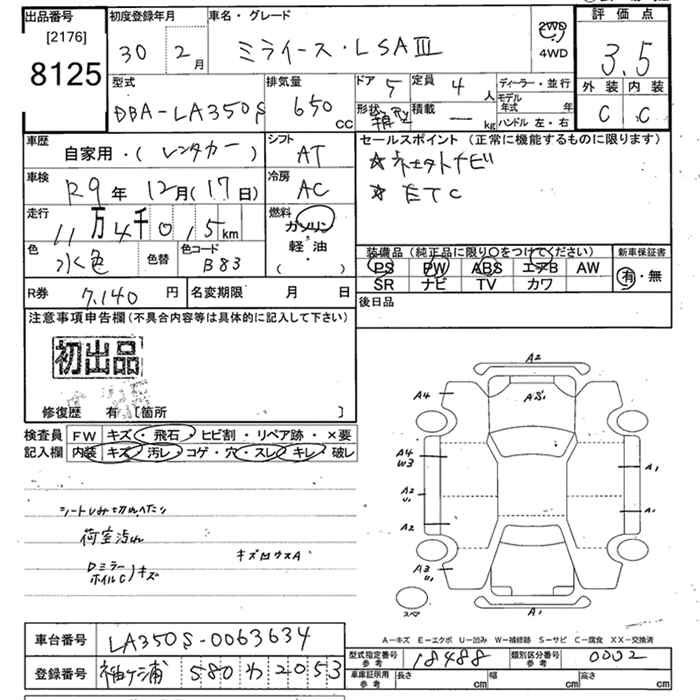 出品番号
[2176]
8125
初度登録年月
30年 2月
車名・グレード
ミライース・LSAⅢ
2WD
4WD
評価点
3.5
外装 内装
C C
型式
DBA-LA350S
排気量
650 CC
ドア 5
定員 4人
形状 箱型
積載 ― kg
ディーラー・並行
モデル年式 年
ハンドル 左・右
車歴
自家用・(レンタカー)
シフト
AT
車検
R9年 12月(17日)
冷房
AC
走行
11万4千015km
燃料
ガソリン
軽・油
( ・ )
色
水色
色替
色コード
B83
セールスポイント(正常に機能するものに限ります)
★ ネオトナビ
★ ETC
装備品(純正品に限り○をつけてください)
PS PW ABS エアB AW
SR ナビ TV カワ
新車保証書
有・無
R券 7,140円
名変期限 月 日
後日品
注意事項申告欄(不具合内容等は具体的に記入して下さい)
初出品
修復歴 有〔箇所 〕
検査員記入欄
FW キズ・飛石・ヒビ割・リペア跡・×要
内装 キズ・汚レ・コゲ・穴・スレ・キレ・破レ
シートしみ切れへたり
荷室汚れ
Dミラー
ホイルC)キズ
キズ凹ウスA
A2
A4
A4
W3
A2
U1
A2
A3
U1
A1
A1
A1
スペア
A-キズ E-エクボ U-凹み W-補修跡 S-サビ C-腐食 XX-交換済
車台番号 LA350S-0063634
登録番号 袖ヶ浦 580 わ 2053
型式指定番号 参考 18488
類別区分番号 参考 0002
車庫証明用 参考 長さ cm 幅 cm 高さ cm